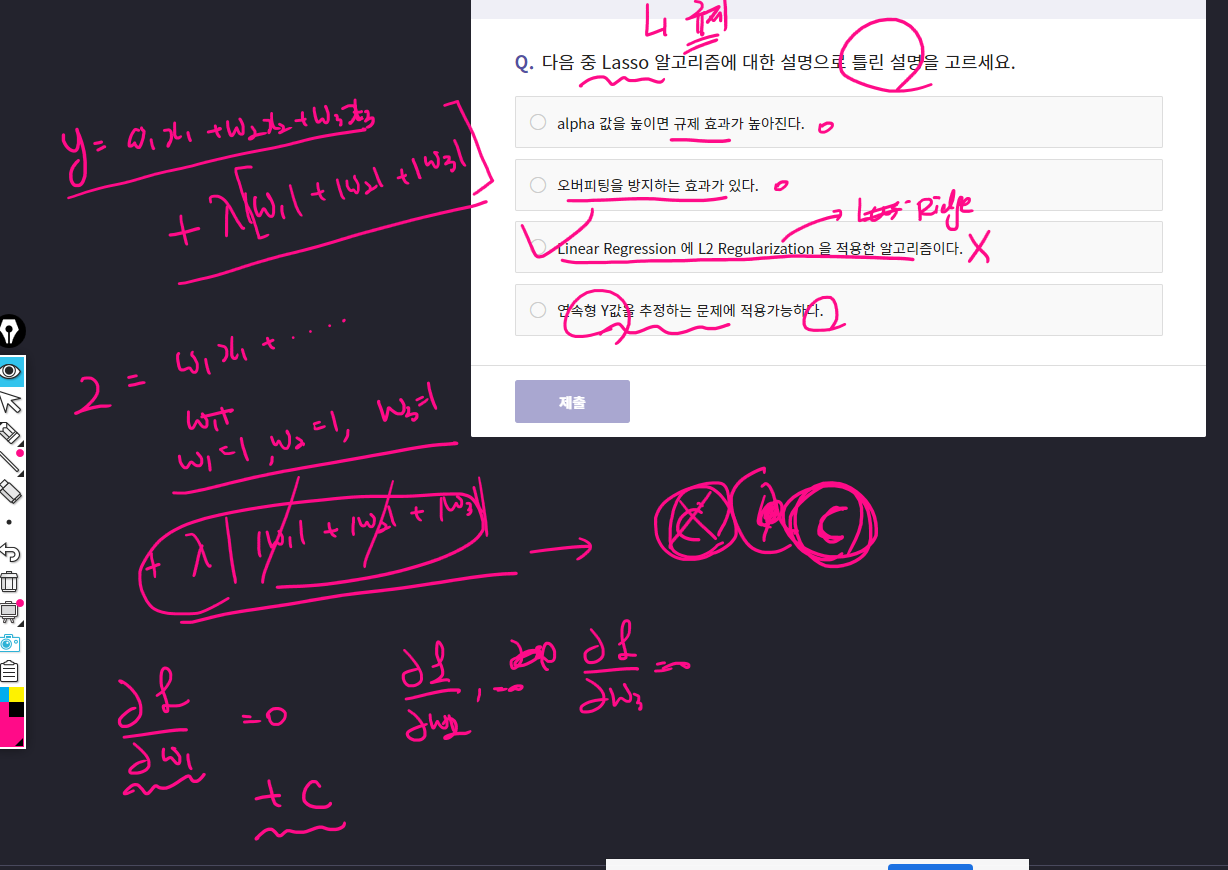 L1 규제
Q. 다음 중 Lasso 알고리즘에 대한 설명으로 틀린 설명을 고르세요.
alpha 값을 높이면 규제 효과가 높아진다. o
오버피팅을 방지하는 효과가 있다. o
Ridge
Linear Regression 에 L2 Regularization 을 적용한 알고리즘이다. X
연속형 Y값을 추정하는 문제에 적용가능하다.
제출
y = w₁x₁ + w₂x₂ + w₃x₃
+ λ[|w₁| + |w₂| + |w₃|]
2 = w₁x₁ + ·····
w₁=1, w₂=1, w₃=1
+ λ | |w₁| + |w₂| + |w₃| | → C
∂L/∂w₁ = 0
∂L/∂w₂, ∂L/∂w₃ =
+ C